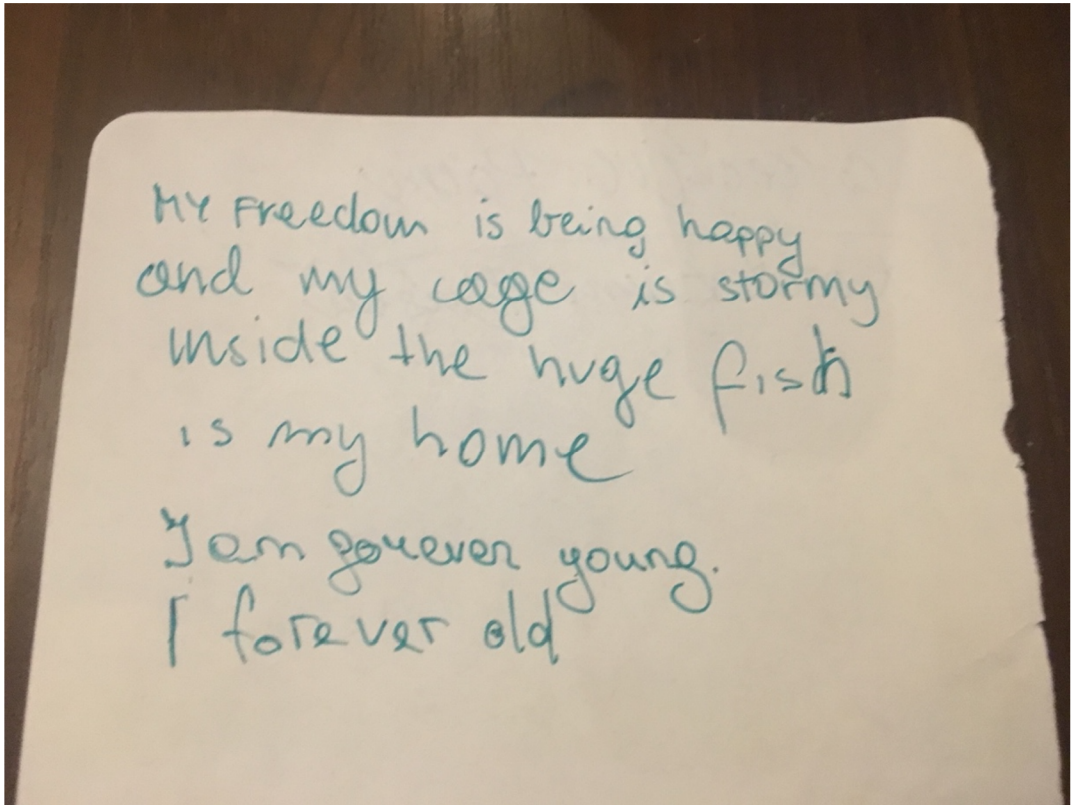 My Freedom is being happy
and my cage is stormy
inside the huge fish
is my home
I am forever young.
I forever old